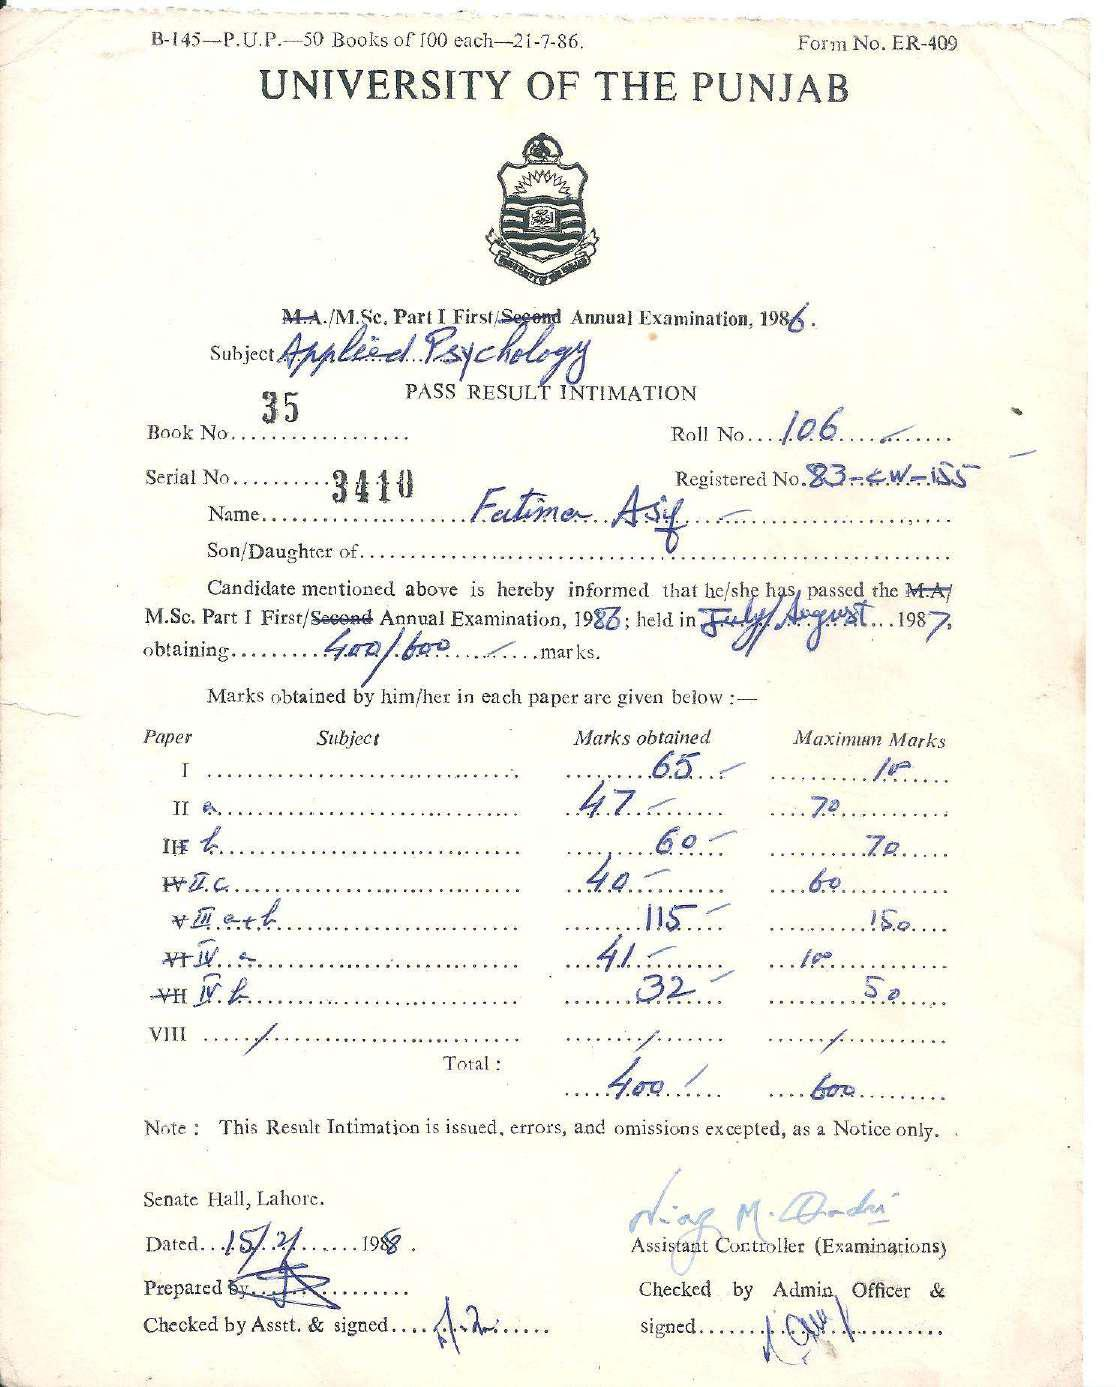 B-145—P.U.P.—50 Books of 100 each—21-7-86. Form No. ER-409
UNIVERSITY OF THE PUNJAB
UNIVERSITY OF THE PUNJAB
M.A./M.Sc. Part I First/Second Annual Examination, 1986.
Subject Applied Psychology
PASS RESULT INTIMATION
Book No. 35 Roll No. 106
Serial No. 3410 Registered No. 83-cw-155
Name Fatima Asif
Son/Daughter of
Candidate mentioned above is hereby informed that he/she has passed the M.A/
M.Sc. Part I First/Second Annual Examination, 1986; held in July/August 1987,
obtaining 400/600 marks.
Marks obtained by him/her in each paper are given below :—
Paper Subject Marks obtained Maximum Marks
I 65 100
II a 47 70
III b 60 70
IV II.c 40 60
V III a+b 115 150
VI IV a 41 100
VII IV b 32 50
VIII / / /
Total :
400 600
Note : This Result Intimation is issued, errors, and omissions excepted, as a Notice only.
Senate Hall, Lahore.
Dated 15/2/ 1988.
Assistant Controller (Examinations)
Prepared by
Checked by Admin Officer &
Checked by Asstt. & signed
signed